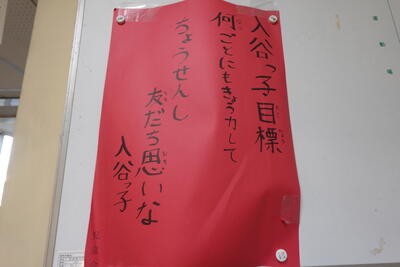 入谷っ子目標
何ごとにもきょう力して
ちょうせんし
友だち思いな
入谷っ子